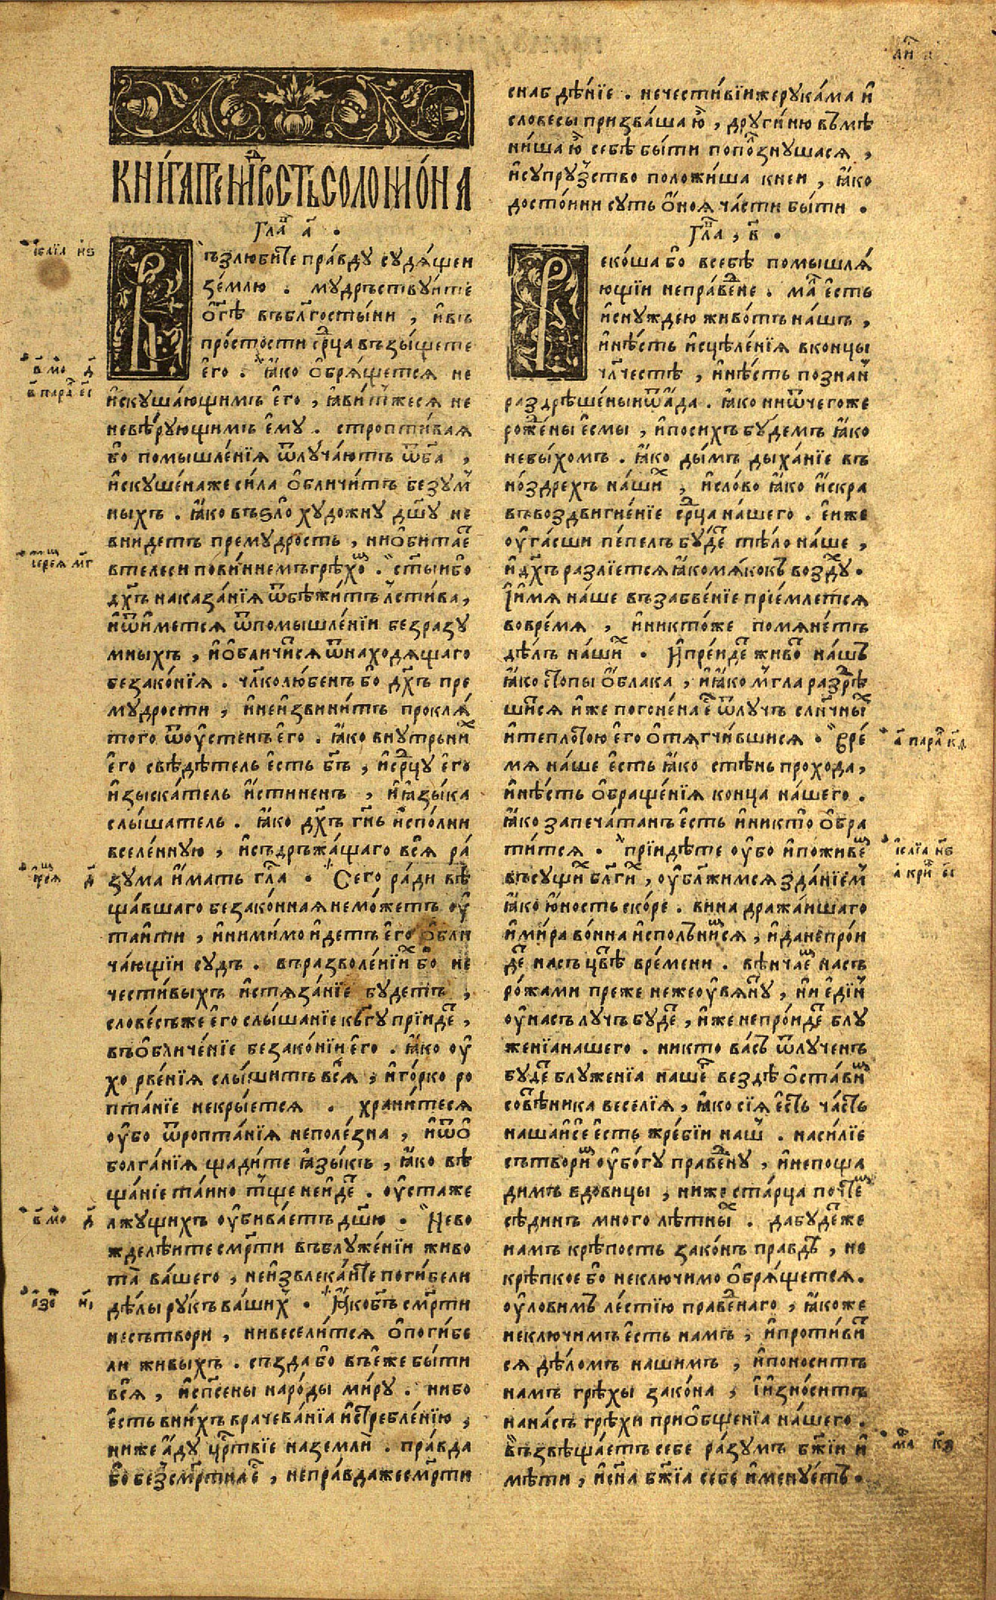 КНИ́ГА ПРЕМⷣРОСТЬ СОЛОМО́НА
Гла҃ а҃ .
Възлюби́те пра́вду судѧ́щеи
зе́млю . мудръствуи́те
ѡ҆ гд҃ѣ въ бл҃госты́ни , и҆ въ
про́стости ср҃ца възы́щете
е҆го . ꙗ҆́ко ѡ҆брѧ́щетсѧ не
и҆скуша́ющимъ е҆го , ꙗ҆ви́тжесѧ не
невѣ́рующимъ е҆му . стропти́ваѧ
бо помышле́нїѧ ѿлуча́ютъ ѿ б҃а ,
и҆скуше́наже си́ла ѡ҆бличи́тъ безу́м
ныхъ . ꙗ҆́ко въ ѕло художну дш҃у не
вни́детъ прему́дрость , ни ѡ҆бита́еⷮ
в телеси пови́ннемъ грѣхо́ⷨ . ст҃ы́и бо
дх҃ъ наказа́нїѧ ѿбѣжи́тъ льсти́ва ,
и҆ ѿи́метсѧ ѿ помышле́нїи безразу́
мныхъ , и҆ ѡ҆бличи́тсѧ ѿ находѧ́щаго
безако́нїѧ . чл҃колю́бенъ бо дх҃ъ пре
му́дрости , и҆ не и҆звини́тъ проклѧ́
того ѿ оу҆сте́нъ е҆го . ꙗ҆́ко вну́трьни́ⷯ
е҆го свѣдѣ́тель е́сть бг҃ъ , и҆ ср҃цу е҆го
и҆зыска́тель и҆́стиненъ , и҆ ꙗ҆зы́ка
слы́шатель . ꙗ҆́ко дх҃ъ гн҃ь и҆спо́лни
вселе́нную , и҆ съдръжа́щаго всѧ̀ ра́
зума и҆́мать гла҃ . Сего ра́ди вѣ
ща́вшаго безако́ннаѧ не мо́жетъ оу҆
таи́ти , и҆ ни ми́мо и҆детъ е҆го ѡ҆бли
ча́ющїи су́дъ . въ разволе́нїиⷯ бо не
чести́выхъ и҆стѧза́нїе бу́детъ ,
слове́съже е҆го слы́шанїе к бг҃у прїи́деⷮ ,
въ ѡ҆бличе́нїе безако́нїи е҆го . ꙗ҆́ко оу҆́
хо рве́нїѧ слы́шитъ всѧ̀ , и҆ го́рко ро
пта́нїе не кры́етсѧ . храни́тесѧ
оу҆бо ѿ ропта́нїѧ неполе́зна , и҆ ѿ ѡ҆
болга́нїѧ щади́те ꙗ҆зы́къ , ꙗ҆́ко вѣ
ща́нїе та́ино тще не и́деⷮ . оу҆ста́же
лжу́щихъ оу҆бива́етъ дш҃ю . Не во
жделѣ́ите см҃рти въ блуже́нїи живо
та̀ ва́шего , ни и҆звлека́ите поги́бели
дѣ́лы ру́къ ва́шиⷯ . Ꙗ҆́ко бг҃ъ см҃рти
не сътвори , ни весели́тсѧ ѡ҆ поги́бе
ли живы́хъ . създа́ бо въ е҆́же бы́ти
всѧ̀ , и҆ спⷭ҇ены наро́ды ми́ру . ни бо
е҆сть в ни́хъ врачева́нїа и҆стребле́нїю ,
ниже а҆́ду црⷭ҇твїе на землѝ . пра́вда
бо безсм҃ртна е҆ⷭ҇ , непра́вдаже см҃рти
снабдѣ́нїе . нечести́вїиже рука́ма и҆
словесы̀ призва́ша ю҆̀ , дру́гиню въмѣ
ни́ша ю҆̀ себѣ̀ бы́ти по поⷧзну́шасѧ ,
и҆ супру́зство положи́ша к неи , ꙗ҆́ко
досто́ини су́ть ѡ҆́ноѧ ча́сти бы́ти .
Гла҃ , в҃ .
Реко́ша бо в себѣ̀ помышлѧ́
ющїи непра́веⷣне . ма́лъ е҆́сть
и҆ с ну́ждею живо́тъ на́шъ ,
и҆ нѣ́сть и҆сцѣле́нїѧ в концы̀
чл҃честѣ , и҆ нѣ́сть позна́нъ
раздрѣше́ныи ѿ а҆́да . ꙗ҆́ко ни ѿ чегоже
роже́ны е҆смы , и҆ по сихъ бу́демъ ꙗ҆́ко
не бы́хомъ . ꙗ҆́ко ды́мъ дыха́нїе въ
но́здрехъ на́шиⷯ , и҆ сло́во ꙗ҆́ко и҆́скра
въ воздвигне́нїе ср҃ца на́шего . е҆́йже
оу҆га́сши пе́пелъ бу́деⷮ тѣ́ло на́ше ,
и҆ дх҃ъ разлїе́тсѧ ꙗ҆́ко мѧ́кокъ во́здуⷯ .
І҆ и҆́мѧ на́ше въ забве́нїе прїе́млетсѧ
во вре́мѧ , и҆ никто́же помѧ́нетъ
дѣ́лъ на́шиⷯ . И҆ пре́идеⷮ живо́ⷮ на́шъ
ꙗ҆́ко стопы̀ ѡ҆́блака , и҆ ꙗ҆́ко мгла̀ разрѣ
ши́тсѧ и҆́же погоне́на е҆ⷭ҇ ѿ лу́чъ слн҃чныⷯ
и҆ теплото́ю е҆го ѡ҆тѧгчи́вшисѧ . Вре́
мѧ на́ше е҆́сть ꙗ҆́ко стѣ́нь прохо́да ,
и҆ нѣ́сть ѡ҆браще́нїѧ конца̀ на́шего .
ꙗ҆́ко запеча́танъ е҆́сть и҆ никто́ ѡ҆бра
ти́тсѧ . прїиді́те оу҆́бо и҆ поживе́ⷨ
въ су́щиⷯ бл҃ги́ⷯ , оу҆блажи́мсѧ зда́нїемъ
ꙗ҆́ко ю҆́ность ско́ре . вина̀ дража́ишаго
и҆ ми́ра во́нна и҆спо́лънимсѧ , и҆ да не про́и
деⷮ на́съ цвѣ́ⷮ вре́мени . вѣнча́еⷨ на́съ
ро́жами пре́же неже оу҆вѧ́ну , и҆ ни е҆ди́нъ
оу҆ на́съ лу́чъ бу́деⷮ , и҆́же не про́идеⷮ блу
же́нїа на́шего . никто́ ва́съ ѿлуче́нъ
бу́деⷮ блуже́нїа на́шеⷢ҇ вездѐ ѡ҆ста́виⷨ
совѣ́тника весе́лїѧ , ꙗ҆́ко сїѧ е҆́сть ча́сть
на́ша и҆ се е҆́сть жре́бїи на́шъ . наси́лїе
сътвори́ⷨ оу҆бо́гу пра́веⷣну , и҆ не поща
ди́мъ вдови́цы , ниже ста́рца почте́ⷨ
сѣди́нъ мно́го лѣ́тныⷯ . да бу́деⷮже
на́мъ крѣ́пость зако́нъ пра́вдѣ , не
крѣ́пкое бо неклю́чимо ѡ҆брѧ́щетсѧ .
оу҆лови́мъ ле́стїю пра́веⷣнаго , ꙗ҆́коже
неклю́чимъ е҆́сть на́мъ , и҆ проти́ви́ⷮ
сѧ дѣло́мъ на́шимъ , и҆ поноси́тъ
на́мъ грѣхы̀ зако́на , і҆ и҆зно́ситъ
на на́съ грѣхѝ приѡ҆бще́нїа на́шего .
възвѣща́етъ себѐ ра́зумъ бж҃їи и҆
мѣ́ти , и҆ сн҃а бж҃їа себѐ и҆мену́етъ .